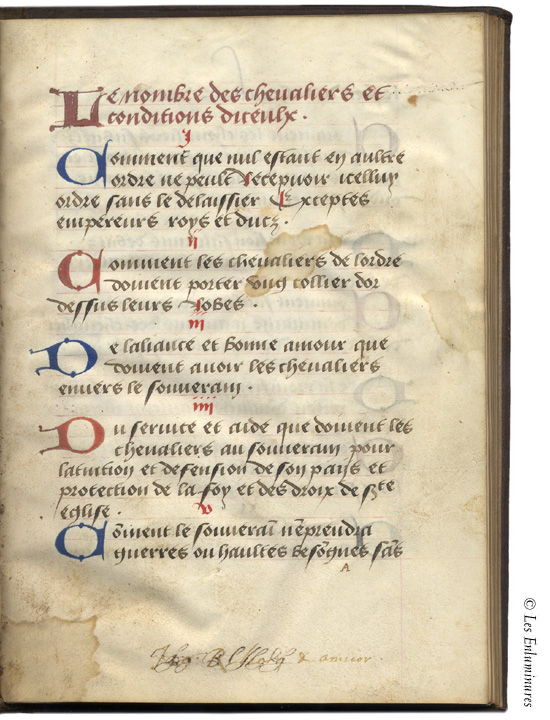 Le nombre des chevaliers et
conditions diceulx .
j
Comment que nul estant en aultre
ordre ne peult recepvoir icelluy
ordre sans le delaissier Exceptes
empereurs roys et ducz .
ij
Comment les chevaliers de lordre
doivent porter ung collier dor
dessus leurs robes .
iij
De laliance et bonne amour que
doivent avoir les chevaliers
envers le souverain .
iiij
Du service et aide que doivent les
chevaliers au souverain pour
latuition et defension de son pays et
protection de la foy et des droix de ste
eglise .
v
Cõment le souverai n̄ ẽprendra
guerres ou haultes besõgnes sãs
A
amicor
© Les Enluminures